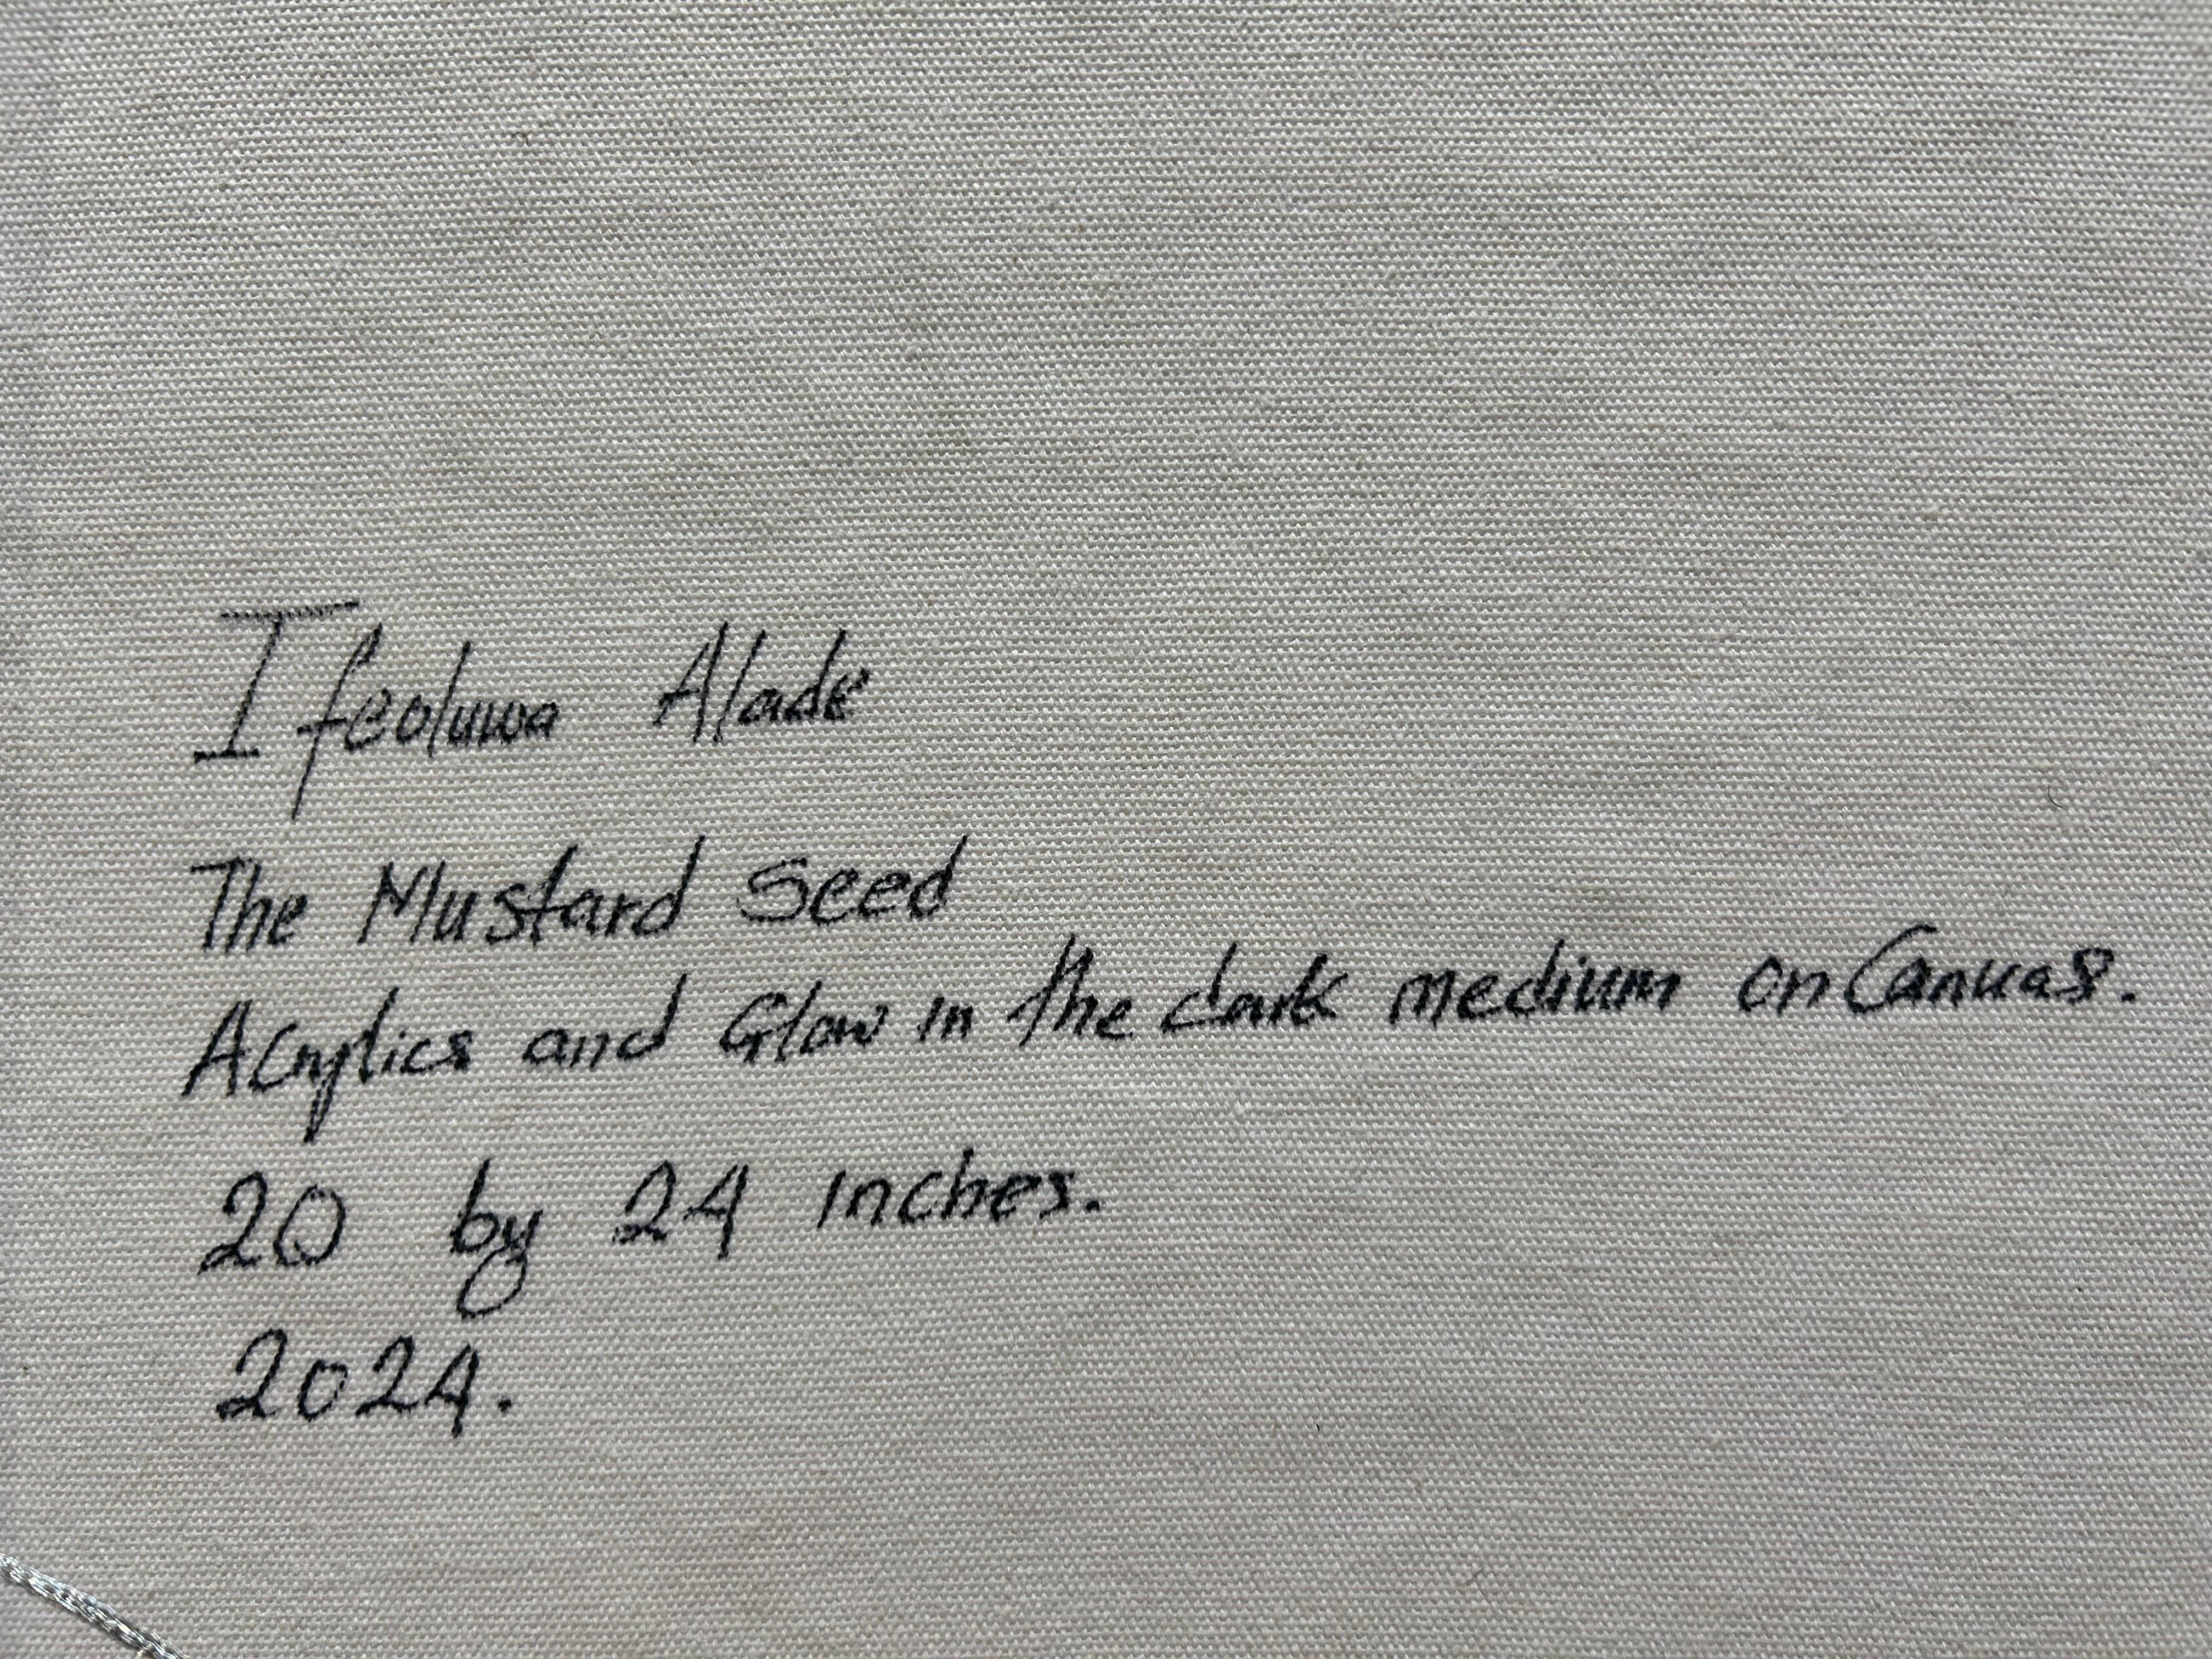 Ifeoluwa Alade
The Mustard Seed
Acrylics and Glow in the dark medium on Canvas.
20 by 24 inches.
2024.